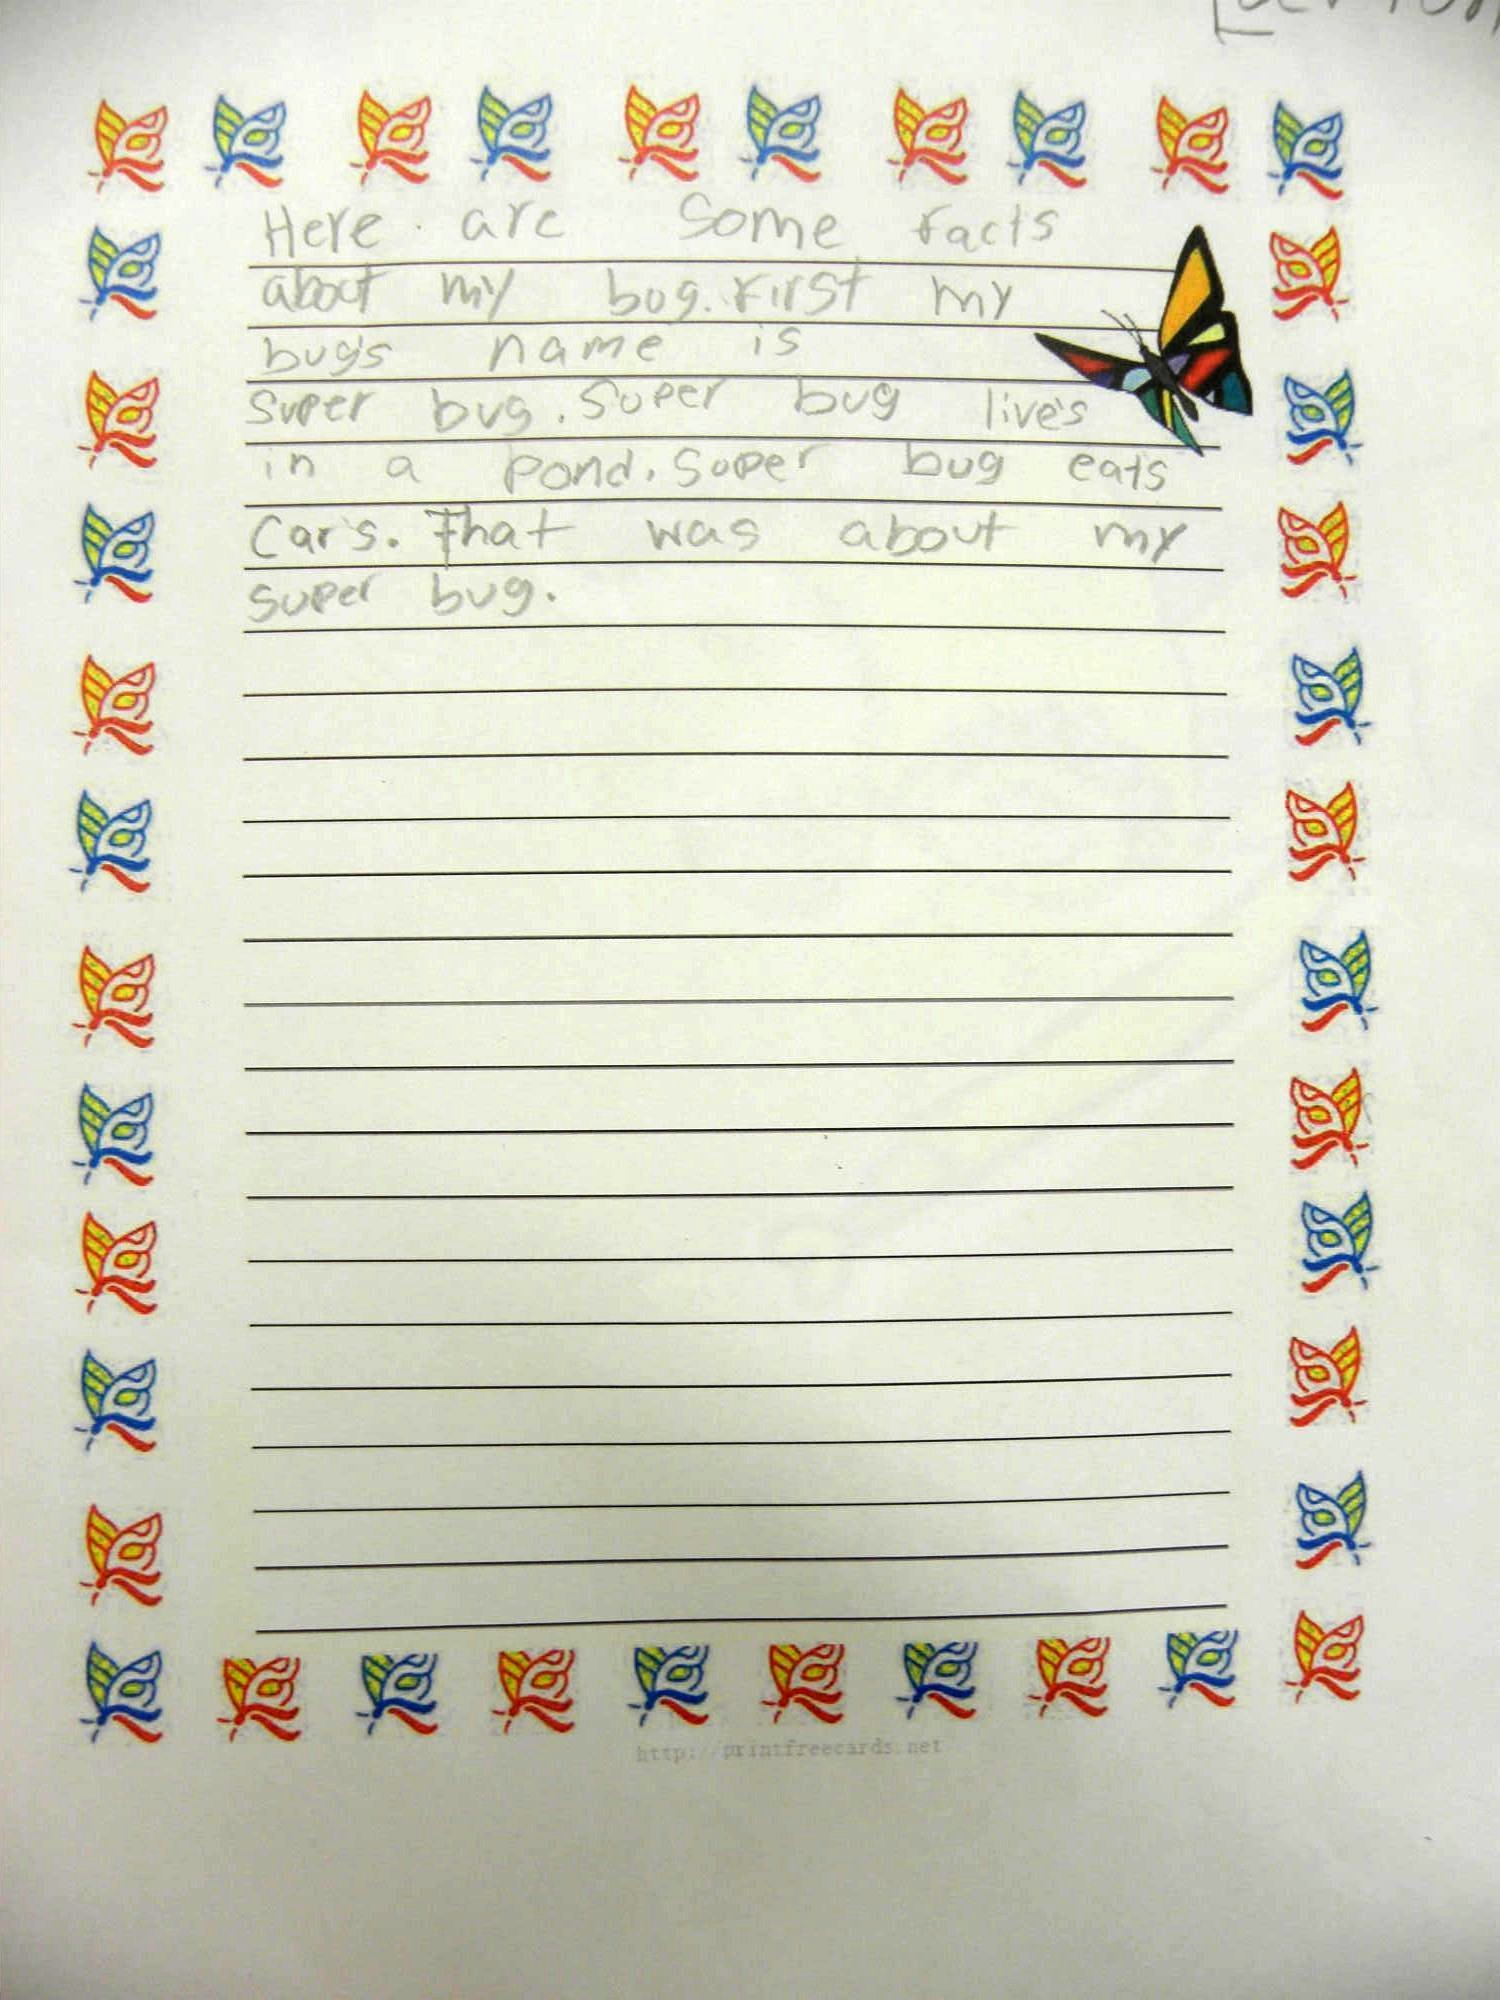 Here are some facts
about my bug. First my
bug's name is
Super bug. Super bug live's
in a pond. Super bug eats
Car's. That was about my
super bug.
http://printfreecards.net